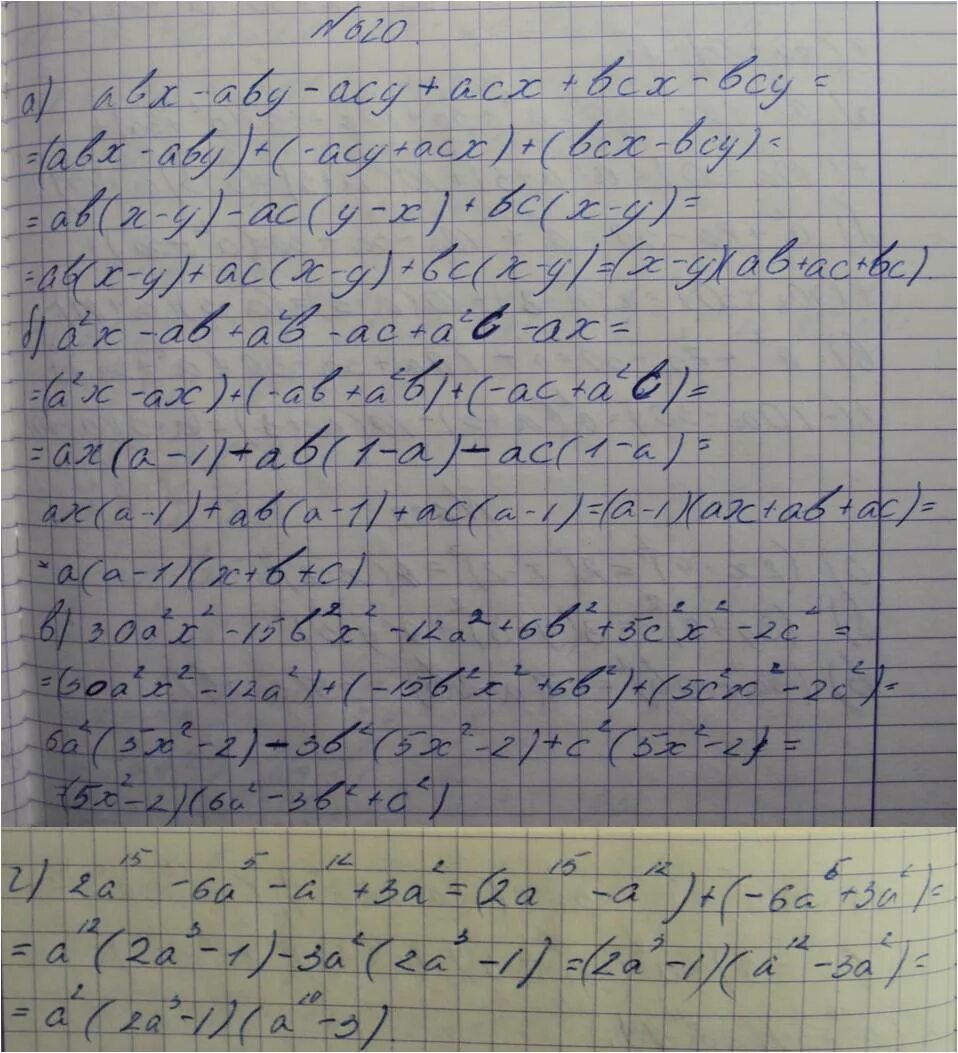 №620.
а) abx - aby - acy + acx + bcx - bcy =
=(abx - aby) + (-acy + acx) + (bcx - bcy) =
= ab(x-y) - ac(y-x) + bc(x-y) =
=ab(x-y) + ac(x-y) + bc(x-y) = (x-y)(ab+ac+bc).
б) a²x - ab + a²b - ac + a²c - ax =
=(a²x - ax) + (-ab + a²b) + (-ac + a²c) =
= ax(a-1) + ab(1-a) - ac(1-a) =
ax(a-1) + ab(a-1) + ac(a-1) = (a-1)(ax+ab+ac) =
= a(a-1)(x+b+c).
в) 30a²x² - 15b²x² - 12a² + 6b² + 5c²x² - 2c² =
=(30a²x² - 12a²) + (-15b²x² + 6b²) + (5c²x² - 2c²) =
6a²(5x²-2) - 3b²(5x²-2) + c²(5x²-2) =
=(5x²-2)(6a² - 3b² + c²)
г) 2a¹⁵ - 6a⁵ - a¹² + 3a² = (2a¹⁵ - a¹²) + (-6a⁵ + 3a²) =
= a¹²(2a³-1) - 3a²(2a³-1) = (2a³-1)(a¹² - 3a²) =
= a²(2a³-1)(a¹⁰-3).